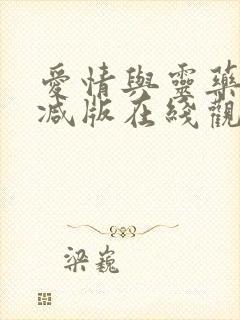 愛情與靈藥
减版在綫觀
梁巍